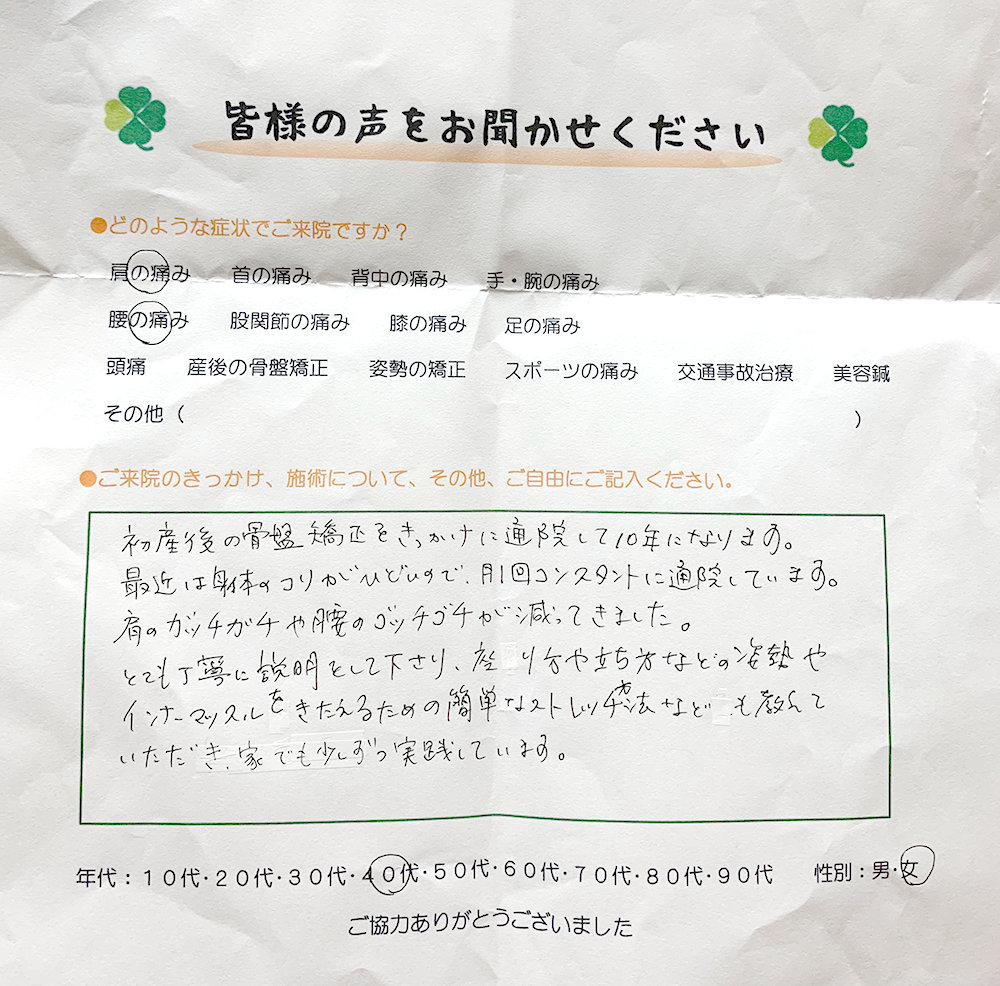 皆様の声をお聞かせください
●どのような症状でご来院ですか？
肩の痛み 首の痛み 背中の痛み 手・腕の痛み
腰の痛み 股関節の痛み 膝の痛み 足の痛み
頭痛 産後の骨盤矯正 姿勢の矯正 スポーツの痛み 交通事故治療 美容鍼
その他（ ）
●ご来院のきっかけ、施術について、その他、ご自由にご記入ください。
初産後の骨盤矯正をきっかけに通院して10年になります。
最近は身体のコリがひどいので、月1回コンスタントに通院しています。
肩のガッチガチや腰のゴッチゴチが減ってきました。
とても丁寧に説明をして下さり、座り方や立ち方などの姿勢や
インナーマッスルをきたえるための簡単なストレッチ方法なども教えて
いただき、家でも少しずつ実践しています。
年代：１０代・２０代・３０代・４０代・５０代・６０代・７０代・８０代・９０代 性別：男・女
ご協力ありがとうございました